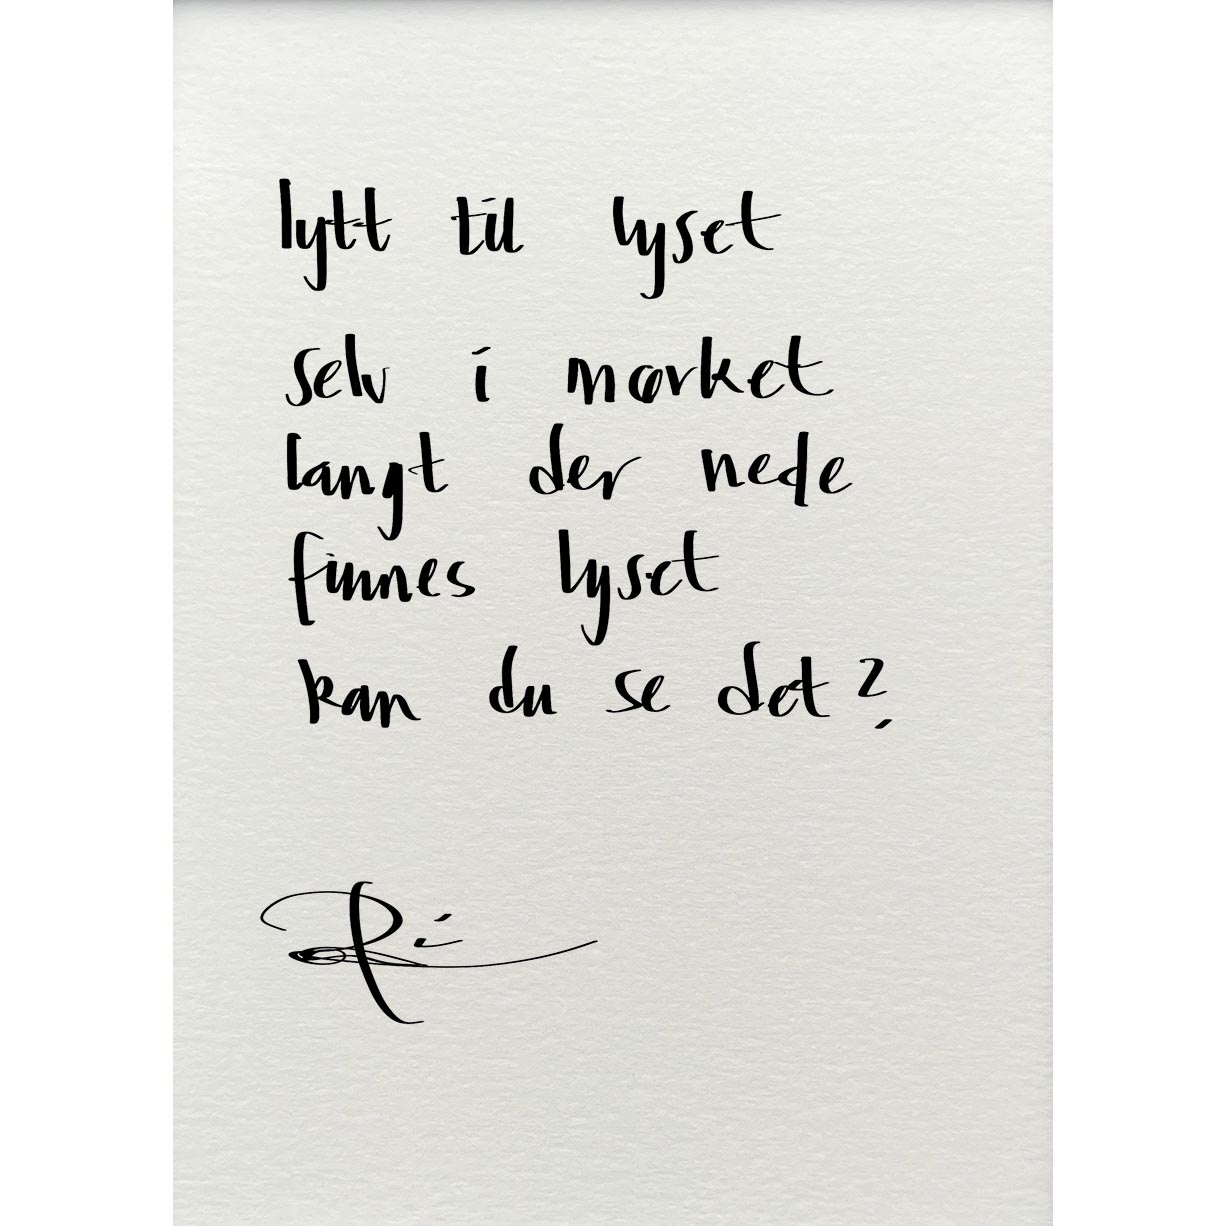 lytt til lyset
selv i mørket
langt der nede
finnes lyset
kan du se det?
Ri